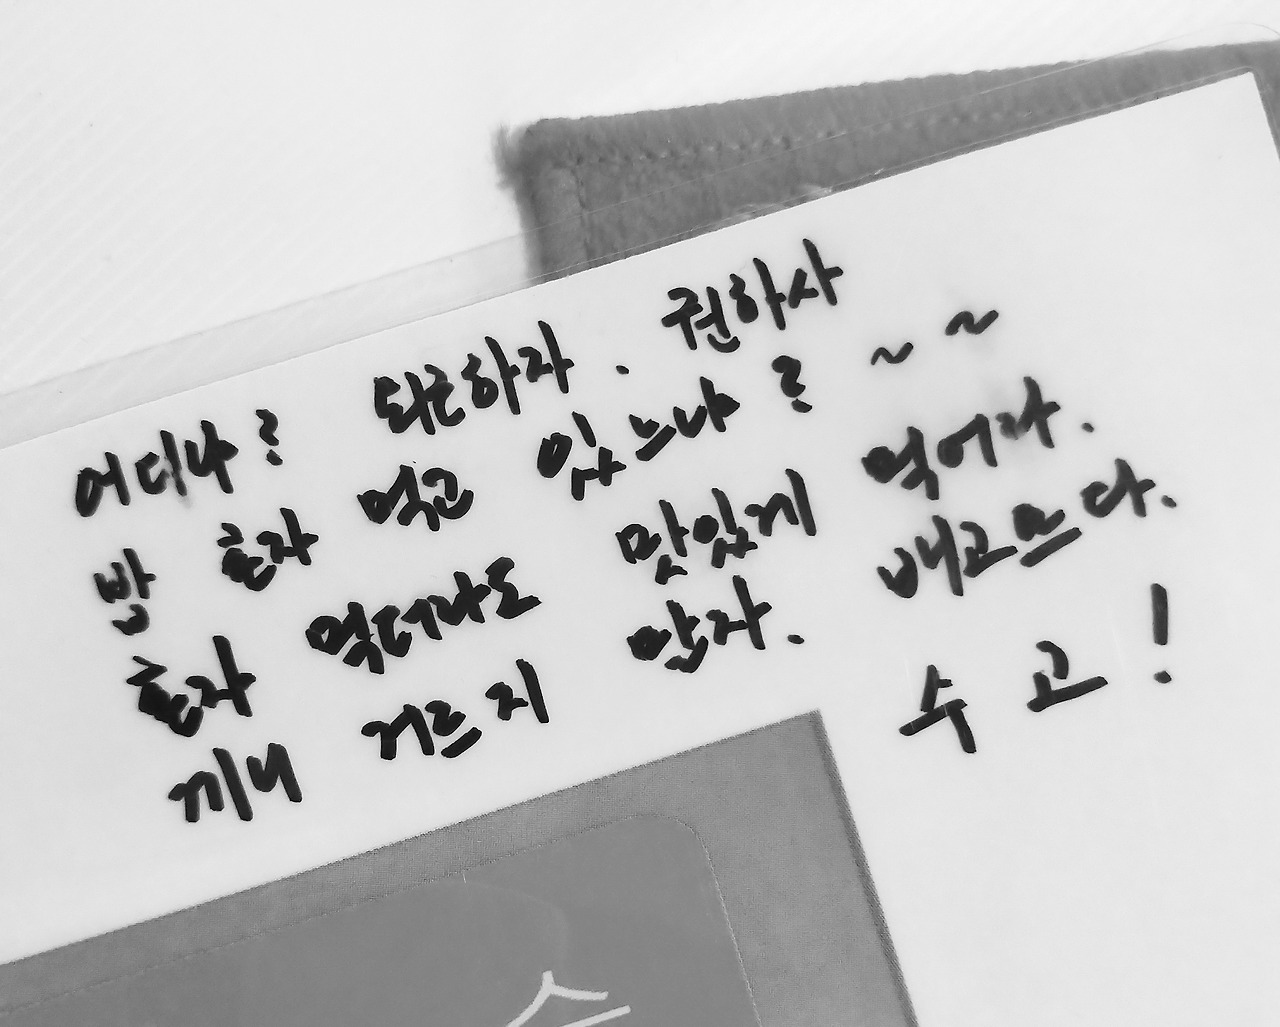 어디냐? 퇴근하자. 권하사
밥 혼자 먹고 있느냐? ~ ~
혼자 먹더라도 맛있게 먹어라.
끼니 거르지 말자. 배고프다.
수고!